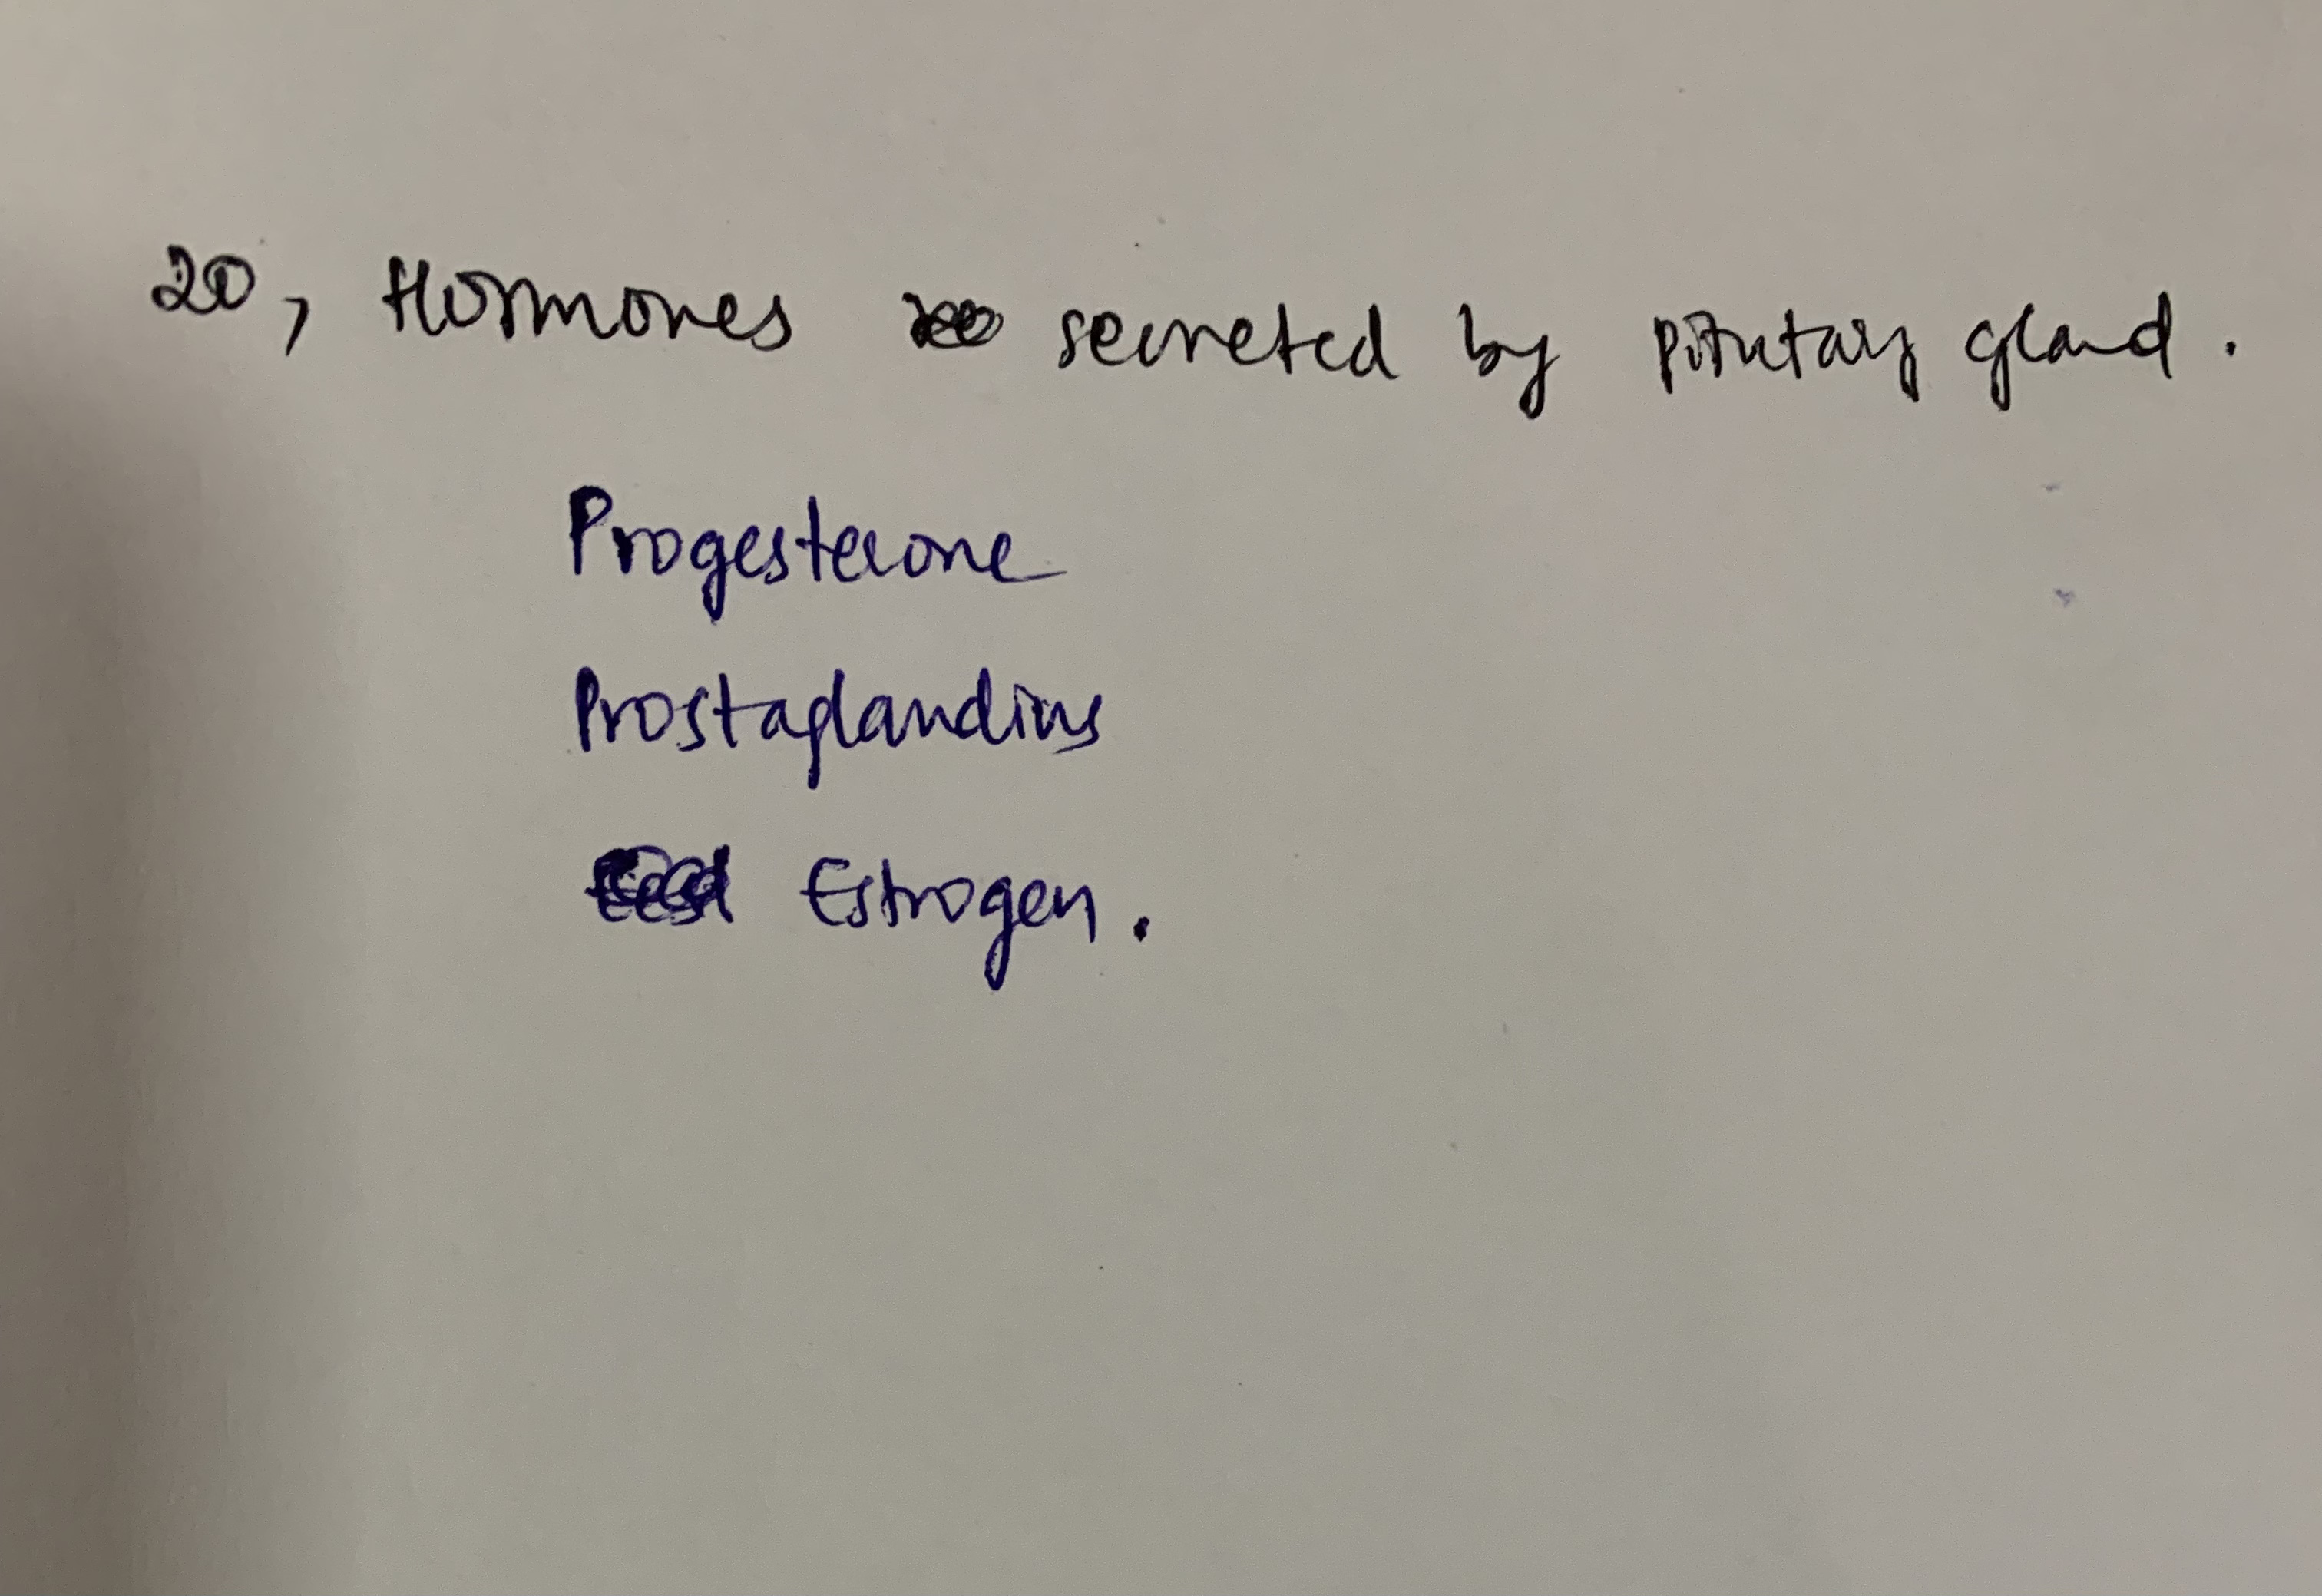 20, Hormones secreted by Pitutary gland.
Progesterone
Prostaglandins
Estrogen.